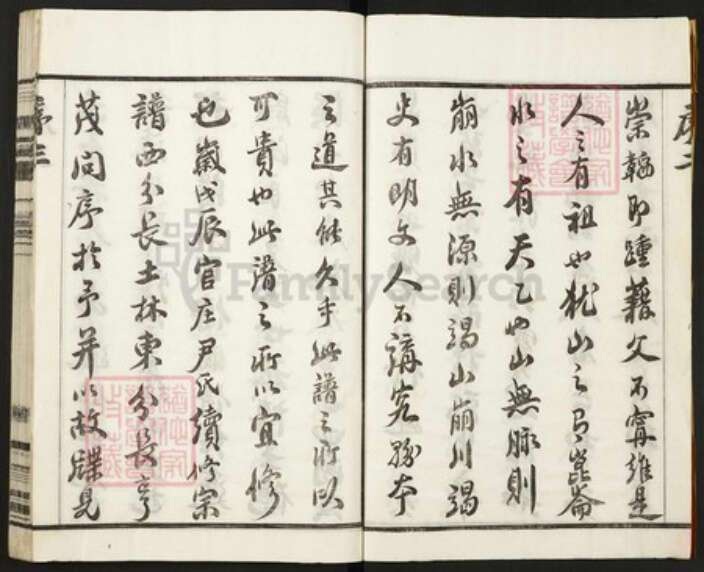 序二
崇韜即踵藉父不寧雖是
人之有祖也猶山之有崑崙
水之有天乙也山無脉則
崩水無源則竭山崩川竭
史有明文人不講究弥本
之道其能久乎此譜之所以
可貴也此譜之所以宜修
也歲戊辰官庄尹氏續修宗
譜西分長土林東分長亨
茂问序於予并以故牒見
序三
FamilySearch